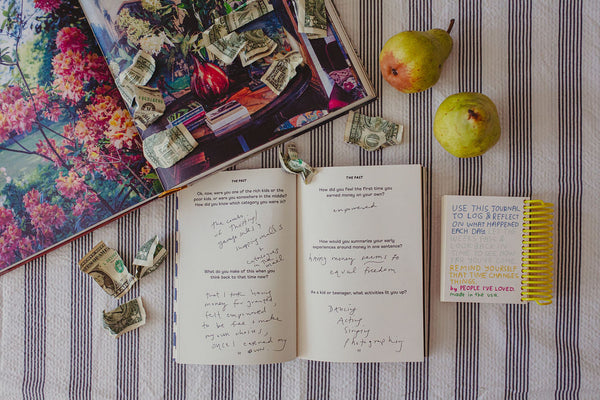 THE PAST
Ok, now, were you one of the rich kids or were you somewhere in the middle?
How did you know which category you were in?
shopping malls
What do you make of this when
you think back to that time now?
that I took having
money for granted
felt empowered
to be free & make
my own choices,
once I earned my
own.
THE PAST
How did you feel the first time you
earned money on your own?
empowered
How would you summarize your early
experiences around money in one sentence?
having money seems to
equal freedom
As a kid or teenager, what activities lit you up?
Dancing
Acting
Singing
Photographing
USE THIS JOURNAL
TO LOG & REFLECT
ON WHAT HAPPENED
EACH DAY.
REMIND YOURSELF
THAT TIME CHANGES
THINGS.
by PEOPLE I'VE LOVED.
made in the USA.